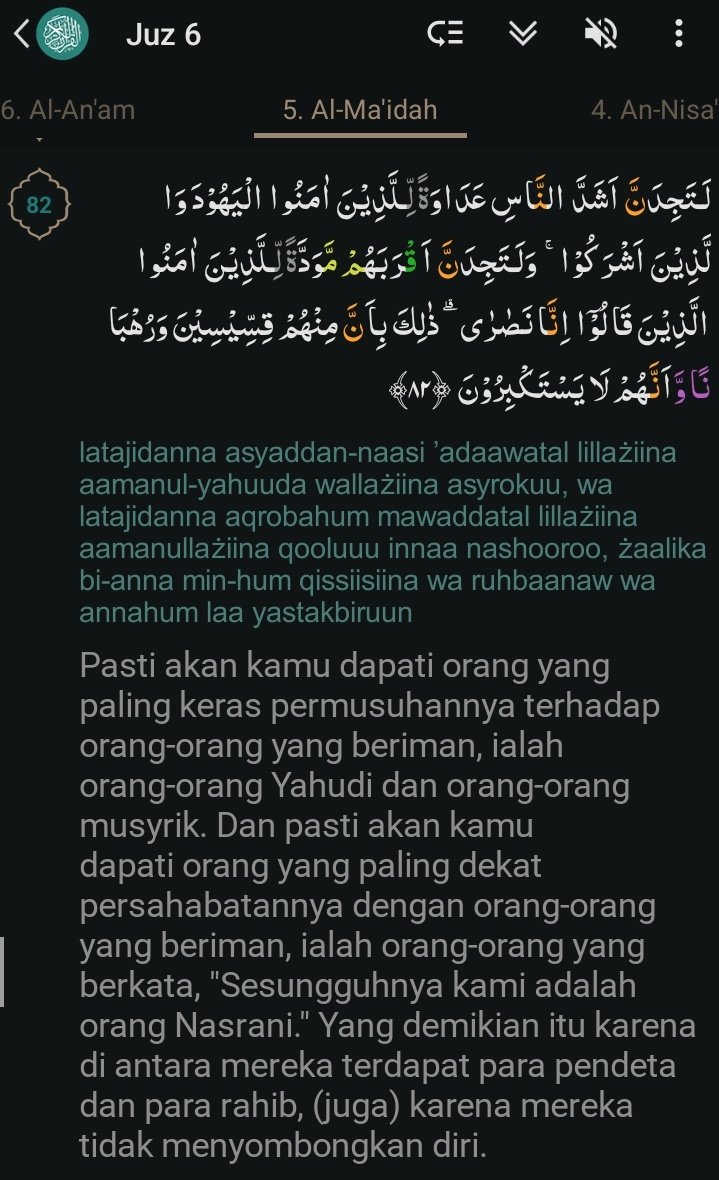 Juz 6
6. Al-An'am
5. Al-Ma'idah
4. An-Nisa'
82
لَتَجِدَنَّ اَشَدَّ النَّاسِ عَدَاوَةً لِّلَّذِيْنَ اٰمَنُوا الْيَهُوْدَ وَا
لَّذِيْنَ اَشْرَكُوْا ۚ وَلَتَجِدَنَّ اَ قْرَبَهُمْ مَّوَدَّةً لِّلَّذِيْنَ اٰمَنُوا
الَّذِيْنَ قَا لُوْۤا اِنَّا نَصٰرٰى ۗ ذٰلِكَ بِاَ نَّ مِنْهُمْ قِسِّيْسِيْنَ وَرُهْبَا
نًا وَّاَنَّهُمْ لَا يَسْتَكْبِرُوْنَ ﴿٨٢﴾
latajidanna asyaddan-naasi 'adaawatal lillażiina
aamanul-yahuuda wallażiina asyrokuu, wa
latajidanna aqrobahum mawaddatal lillażiina
aamanullażiina qooluuu innaa nashooroo, żaalika
bi-anna min-hum qissiisiina wa ruhbaanaw wa
annahum laa yastakbiruun
Pasti akan kamu dapati orang yang
paling keras permusuhannya terhadap
orang-orang yang beriman, ialah
orang-orang Yahudi dan orang-orang
musyrik. Dan pasti akan kamu
dapati orang yang paling dekat
persahabatannya dengan orang-orang
yang beriman, ialah orang-orang yang
berkata, "Sesungguhnya kami adalah
orang Nasrani." Yang demikian itu karena
di antara mereka terdapat para pendeta
dan para rahib, (juga) karena mereka
tidak menyombongkan diri.